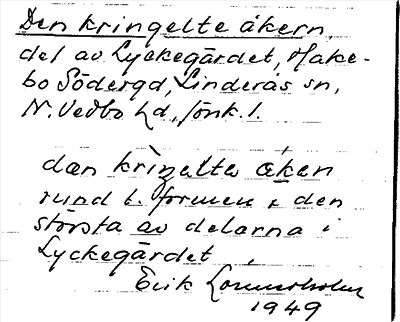 Den kringelte åkern,
del av Lyckegärdet, Hake-
bo Södergd, Linderås sn,
N. Vedbo hd, Jönk. l.
dæn krìŋelta ákən
rund t. formen, den
största av delarna i
Lyckegärdet.
Erik
1949